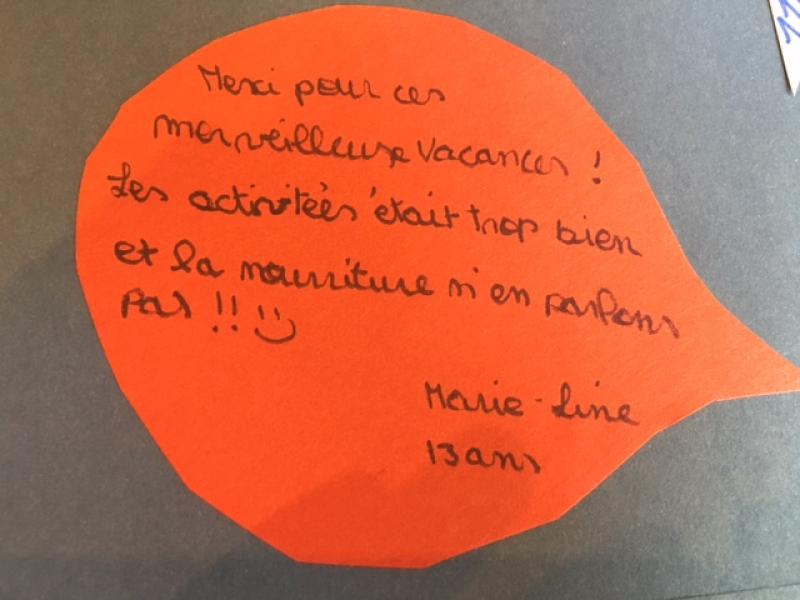 Merci pour ces
merveilleuse vacances !
Les activitées était trop bien
et la nourriture n'en parlons
pas !!
Marie-Line
13 ans
11